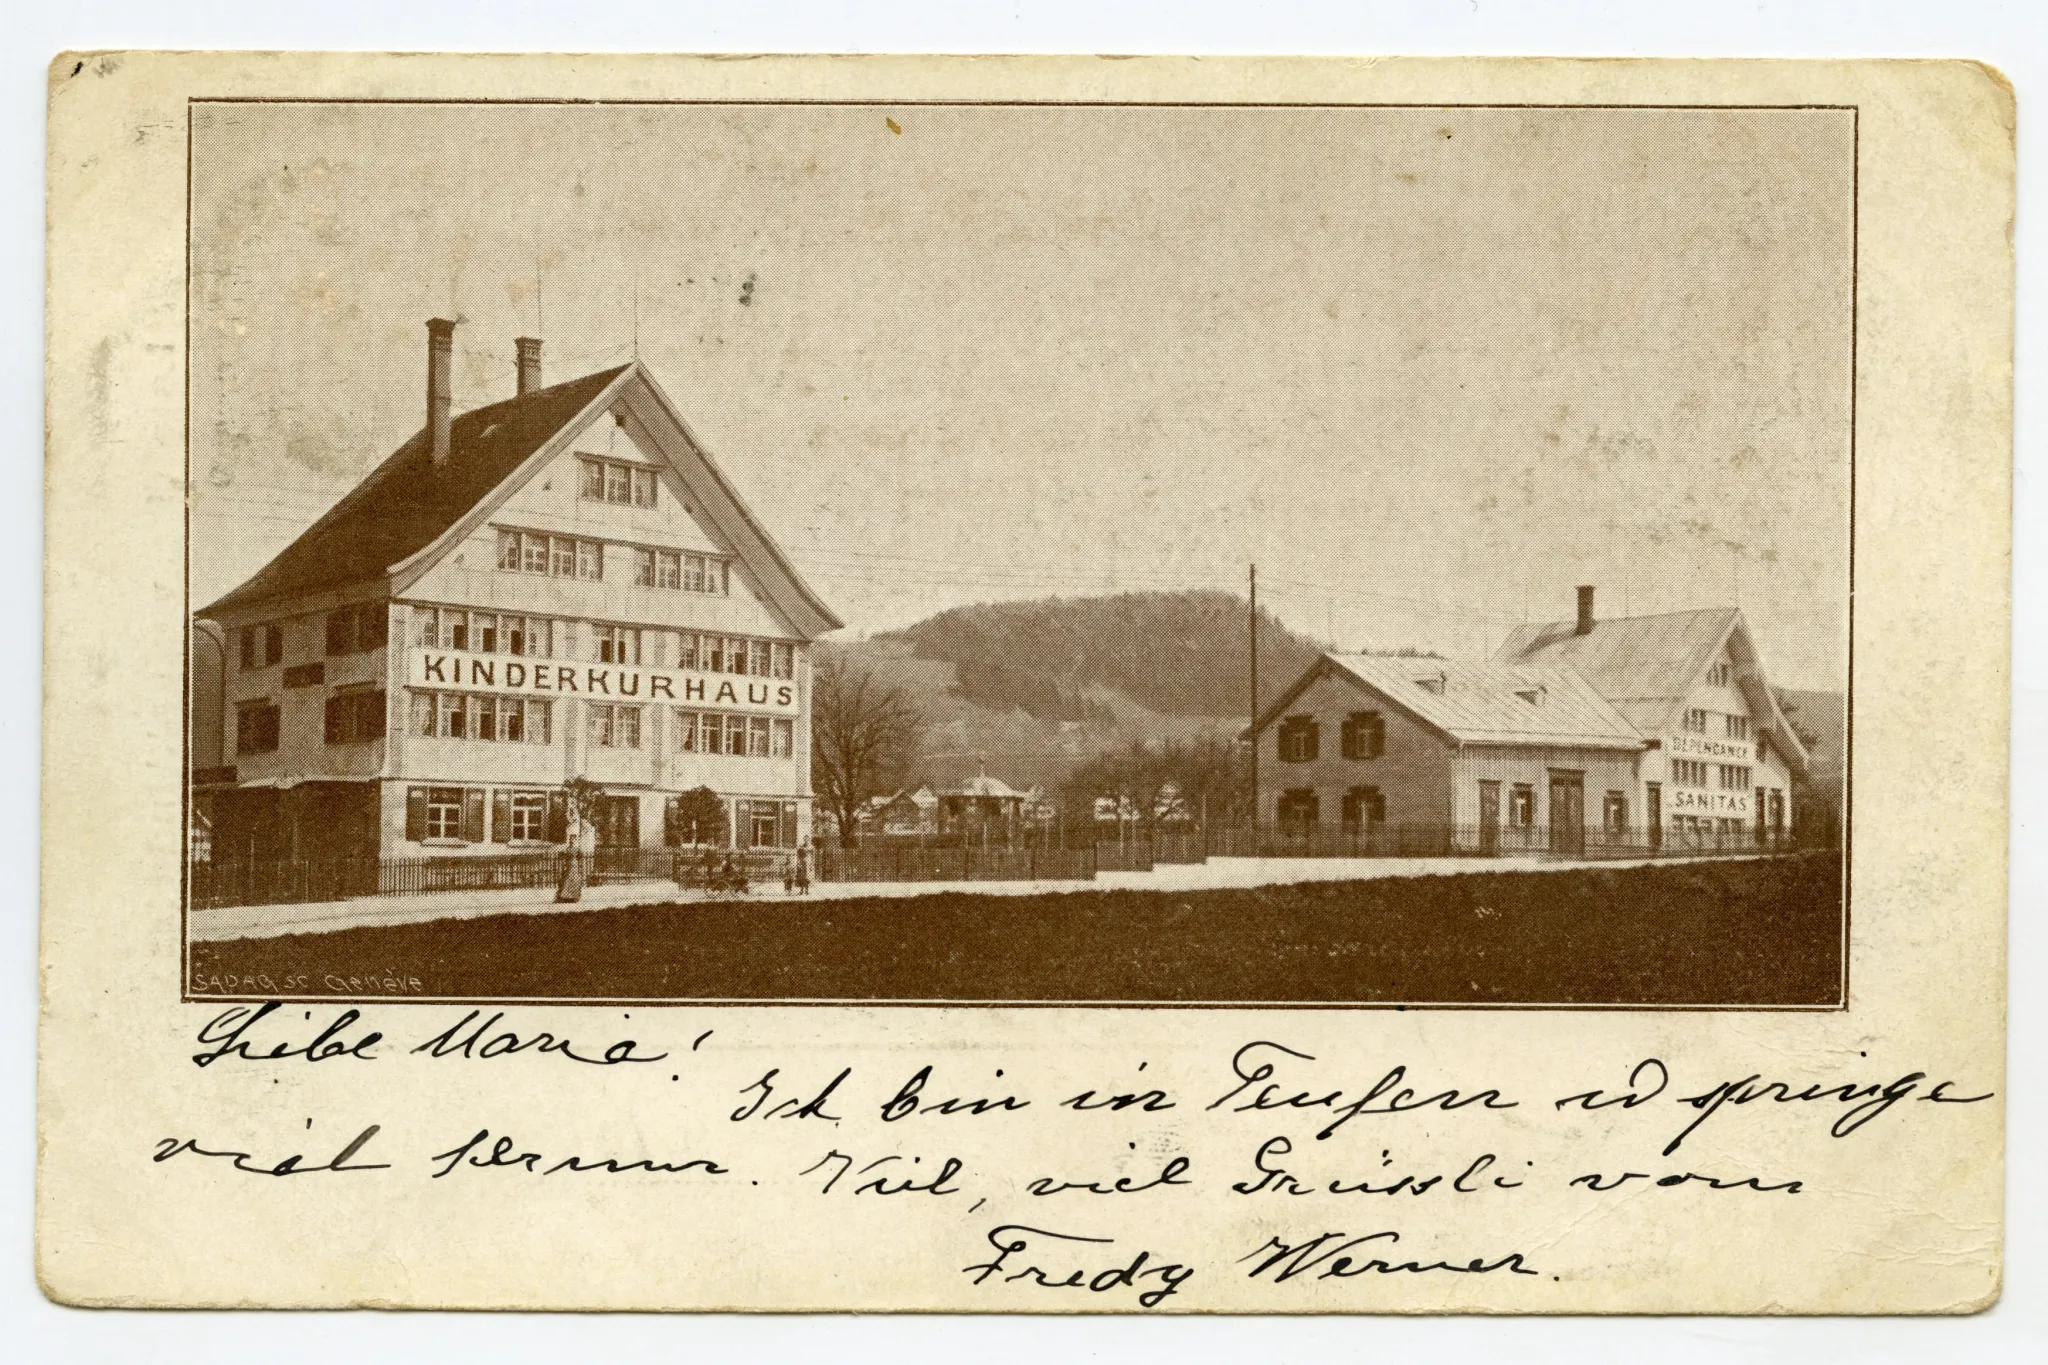 KINDERKURHAUS
DEPENDANCE
„SANITAS"
SADAG SC Genève
Liebe Marie!
Ich bin in Teufen u springe
viel herum. Viel, viel Grüssli vom
Fredy Werner.